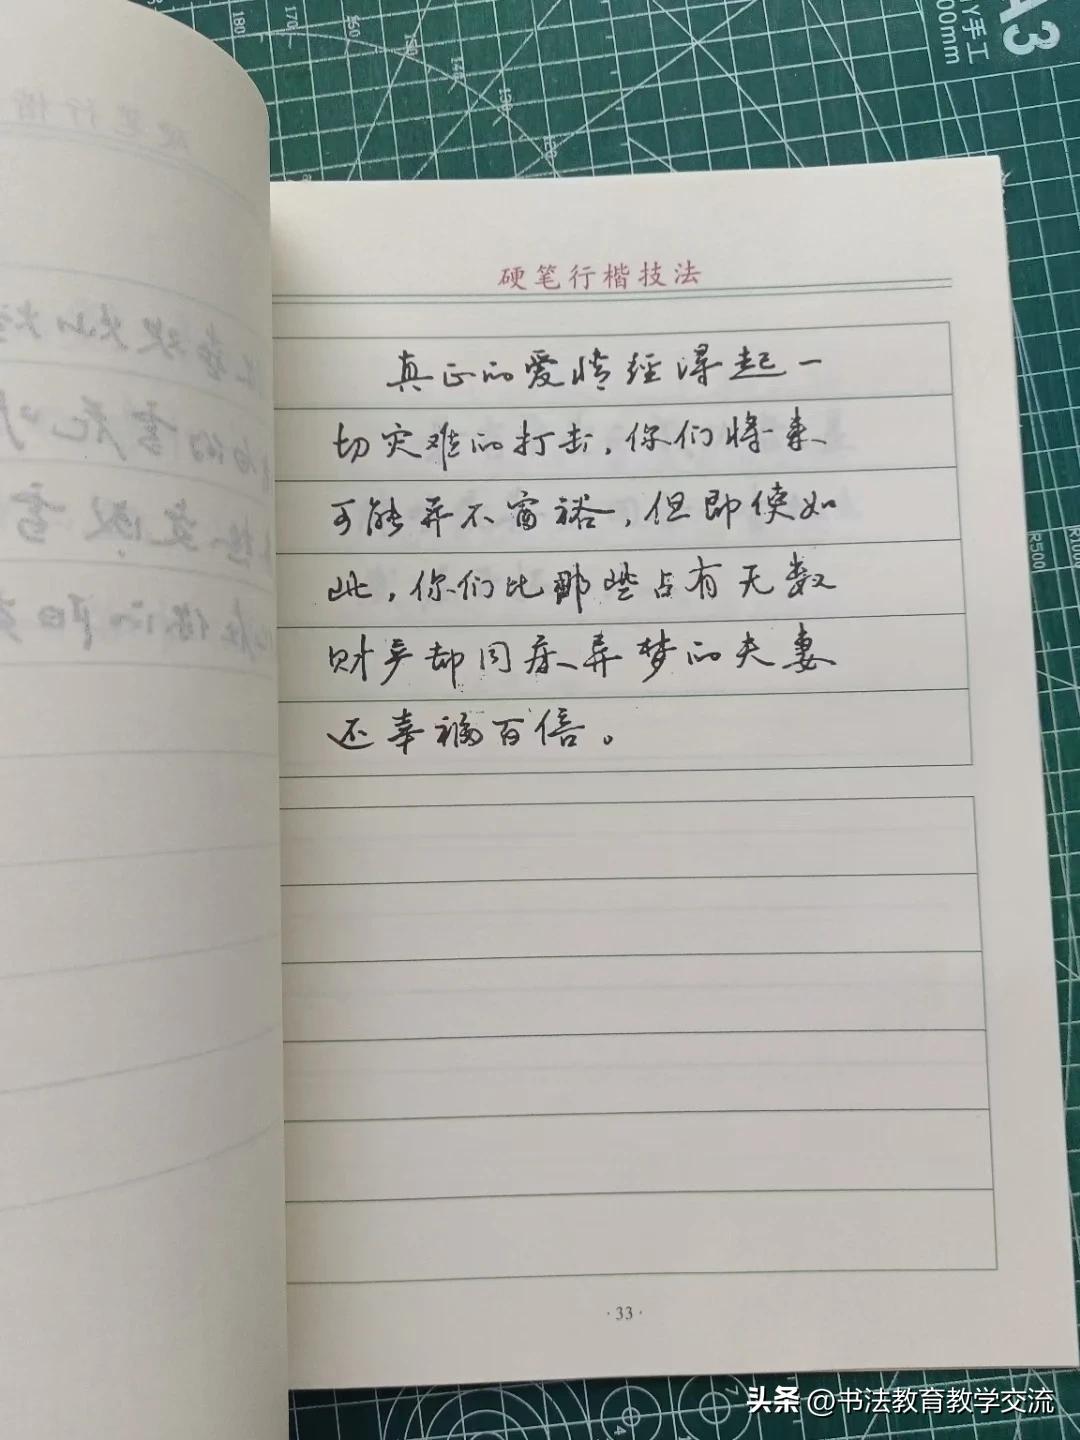 硬笔行楷技法
真正的爱情经得起一
切灾难的打击,你们将来
可能并不富裕,但即使如
此,你们比那些占有无数
财产却同床异梦的夫妻
还幸福百倍。
·33·
A3
DIY手工
300mm
180
170
160
150
140
130
R500
R100
头条 @书法教育教学交流